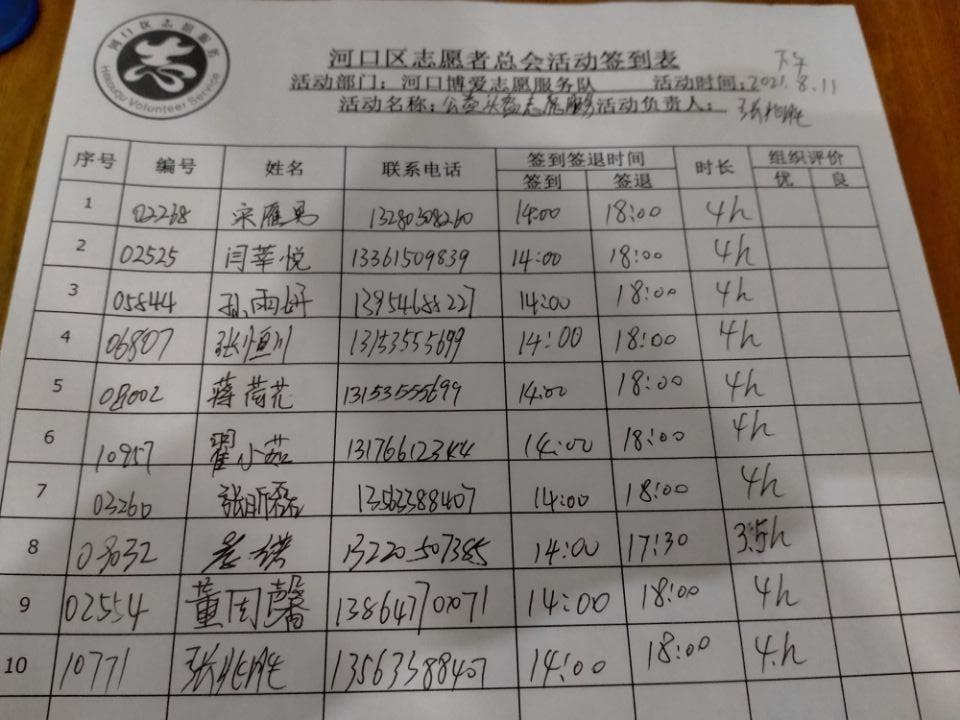 河口区志愿服务
Hekouqu Volunteer Service
河口区志愿者总会活动签到表
下午
活动部门：河口博爱志愿服务队 活动时间：2021.8.11
活动名称：公益 活动负责人：
序号 编号 姓名 联系电话 签到签退时间 时长 组织评价
签到 签退 优 良
1 02238 宋雁 13280308260 14:00 18:00 4h
2 02525 闫莘悦 13361509839 14:00 18:00 4h
3 05844 孙雨妍 13954688227 14:00 18:00 4h
4 06807 张恒川 13153555699 14:00 18:00 4h
5 08002 蒋荷花 13153555699 14:00 18:00 4h
6 10957 翟小茹 13176612344 14:00 18:00 4h
7 03260 张昕磊 13563388407 14:00 18:00 4h
8 08032 13220507385 14:00 17:30 3.5h
9 02554 董雨馨 13864770071 14:00 18:00 4h
10 10771 张 13563388407 14:00 18:00 4.h